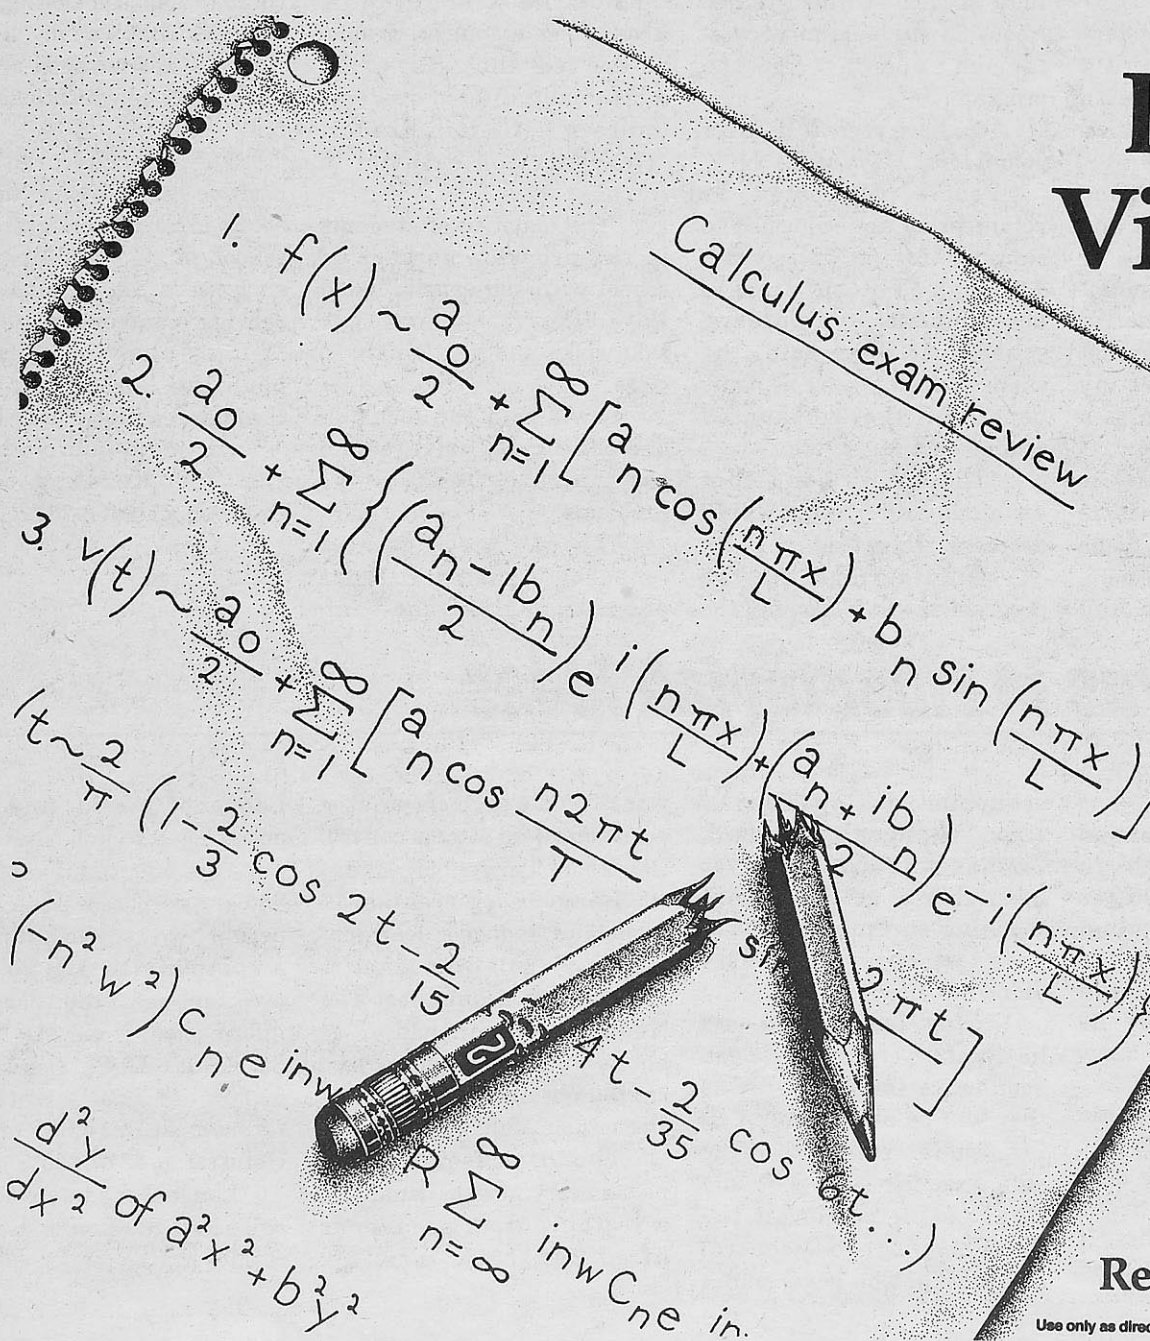 Vi
Calculus exam review
1. f(x) ~ a0/2 + ∑ n=1 ∞ [an cos(nπx/L) + bn sin(nπx/L)]
2. a0/2 + ∑ n=1 ∞ {(an-ibn/2) e i(nπx/L) + (an+ibn/2) e -i(nπx/L)}
3. v(t) ~ a0/2 + ∑ n=1 ∞ [an cos n2πt/T
2πt]
(t ~ 2/π (1 - 2/3 cos 2t - 2/15
4t - 2/35 cos 6t...)
(-n²w²) Cne inw
R ∑ n=∞ ∞ inw Cne in.
d²y/dx² of a²x² + b²y²
2
Re
Use only as direc